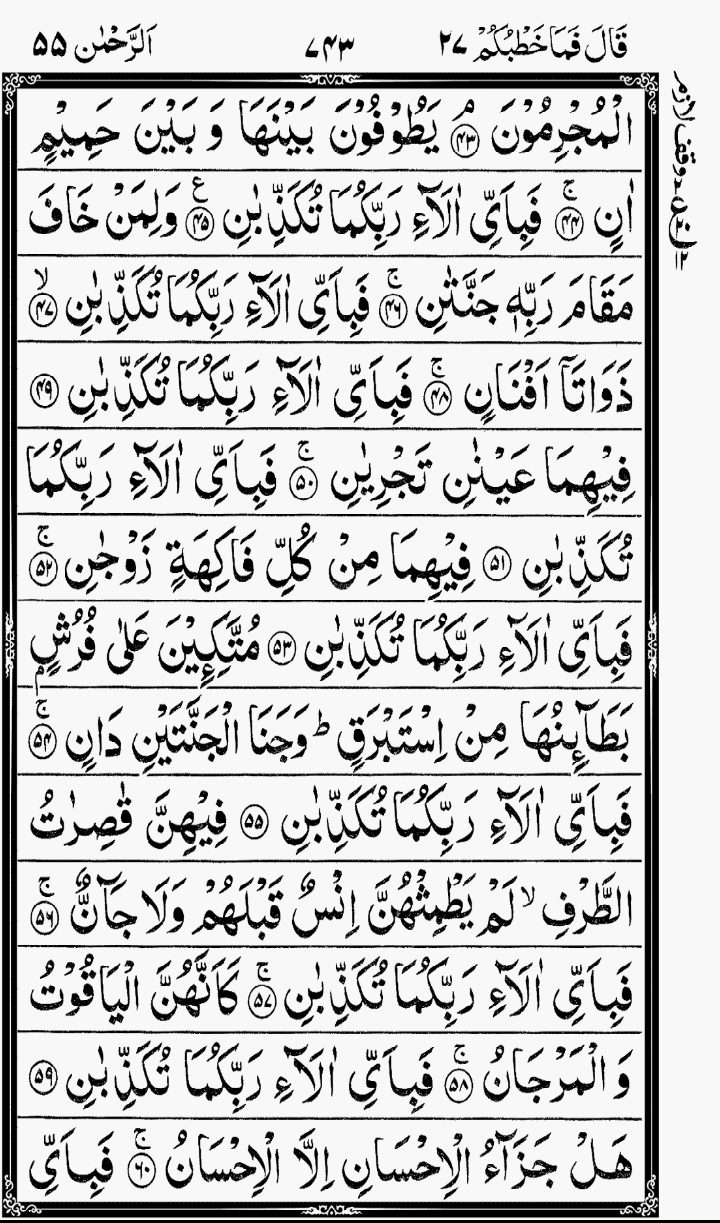 قَالَ فَمَا خَطْبُكُمْ ۲۷ ۷۴۳ اَلرَّحْمٰن ۵۵
الْمُجْرِمُوْنَ ۘ ﴿۴۳﴾ يَطُوْفُوْنَ بَيْنَهَا وَ بَيْنَ حَمِيْمٍ
اٰنٍ ۚ ﴿۴۴﴾ فَبِاَيِّ اٰلَآءِ رَبِّكُمَا تُكَذِّبٰنِ ﴿۴۵﴾ ع وَلِمَنْ خَافَ
مَقَامَ رَبِّهٖ جَنَّتٰنِ ۚ ﴿۴۶﴾ فَبِاَيِّ اٰلَآءِ رَبِّكُمَا تُكَذِّبٰنِ ۙ ﴿۴۷﴾
ذَوَاتَآ اَفْنَانٍ ۚ ﴿۴۸﴾ فَبِاَيِّ اٰلَآءِ رَبِّكُمَا تُكَذِّبٰنِ ﴿۴۹﴾
فِيْهِمَا عَيْنٰنِ تَجْرِيٰنِ ۚ ﴿۵۰﴾ فَبِاَيِّ اٰلَآءِ رَبِّكُمَا
تُكَذِّبٰنِ ﴿۵۱﴾ فِيْهِمَا مِنْ كُلِّ فَاكِهَةٍ زَوْجٰنِ ۚ ﴿۵۲﴾
فَبِاَيِّ اٰلَآءِ رَبِّكُمَا تُكَذِّبٰنِ ﴿۵۳﴾ مُتَّكِـِٕيْنَ عَلٰى فُرُشٍۢ
بَطَآئِنُهَا مِنْ اِسْتَبْرَقٍ ؕ وَجَنَا الْجَنَّتَيْنِ دَانٍ ۚ ﴿۵۴﴾
فَبِاَيِّ اٰلَآءِ رَبِّكُمَا تُكَذِّبٰنِ ﴿۵۵﴾ فِيْهِنَّ قٰصِرٰتُ
الطَّرْفِ ۙ لَمْ يَطْمِثْهُنَّ اِنْسٌ قَبْلَهُمْ وَلَا جَآنٌّ ۚ ﴿۵۶﴾
فَبِاَيِّ اٰلَآءِ رَبِّكُمَا تُكَذِّبٰنِ ۚ ﴿۵۷﴾ كَاَنَّهُنَّ الْيَاقُوْتُ
وَ الْمَرْجَانُ ۚ ﴿۵۸﴾ فَبِاَيِّ اٰلَآءِ رَبِّكُمَا تُكَذِّبٰنِ ﴿۵۹﴾
هَلْ جَزَآءُ الْاِحْسَانِ اِلَّا الْاِحْسَانُ ۚ ﴿۶۰﴾ فَبِاَيِّ
وقف لازم